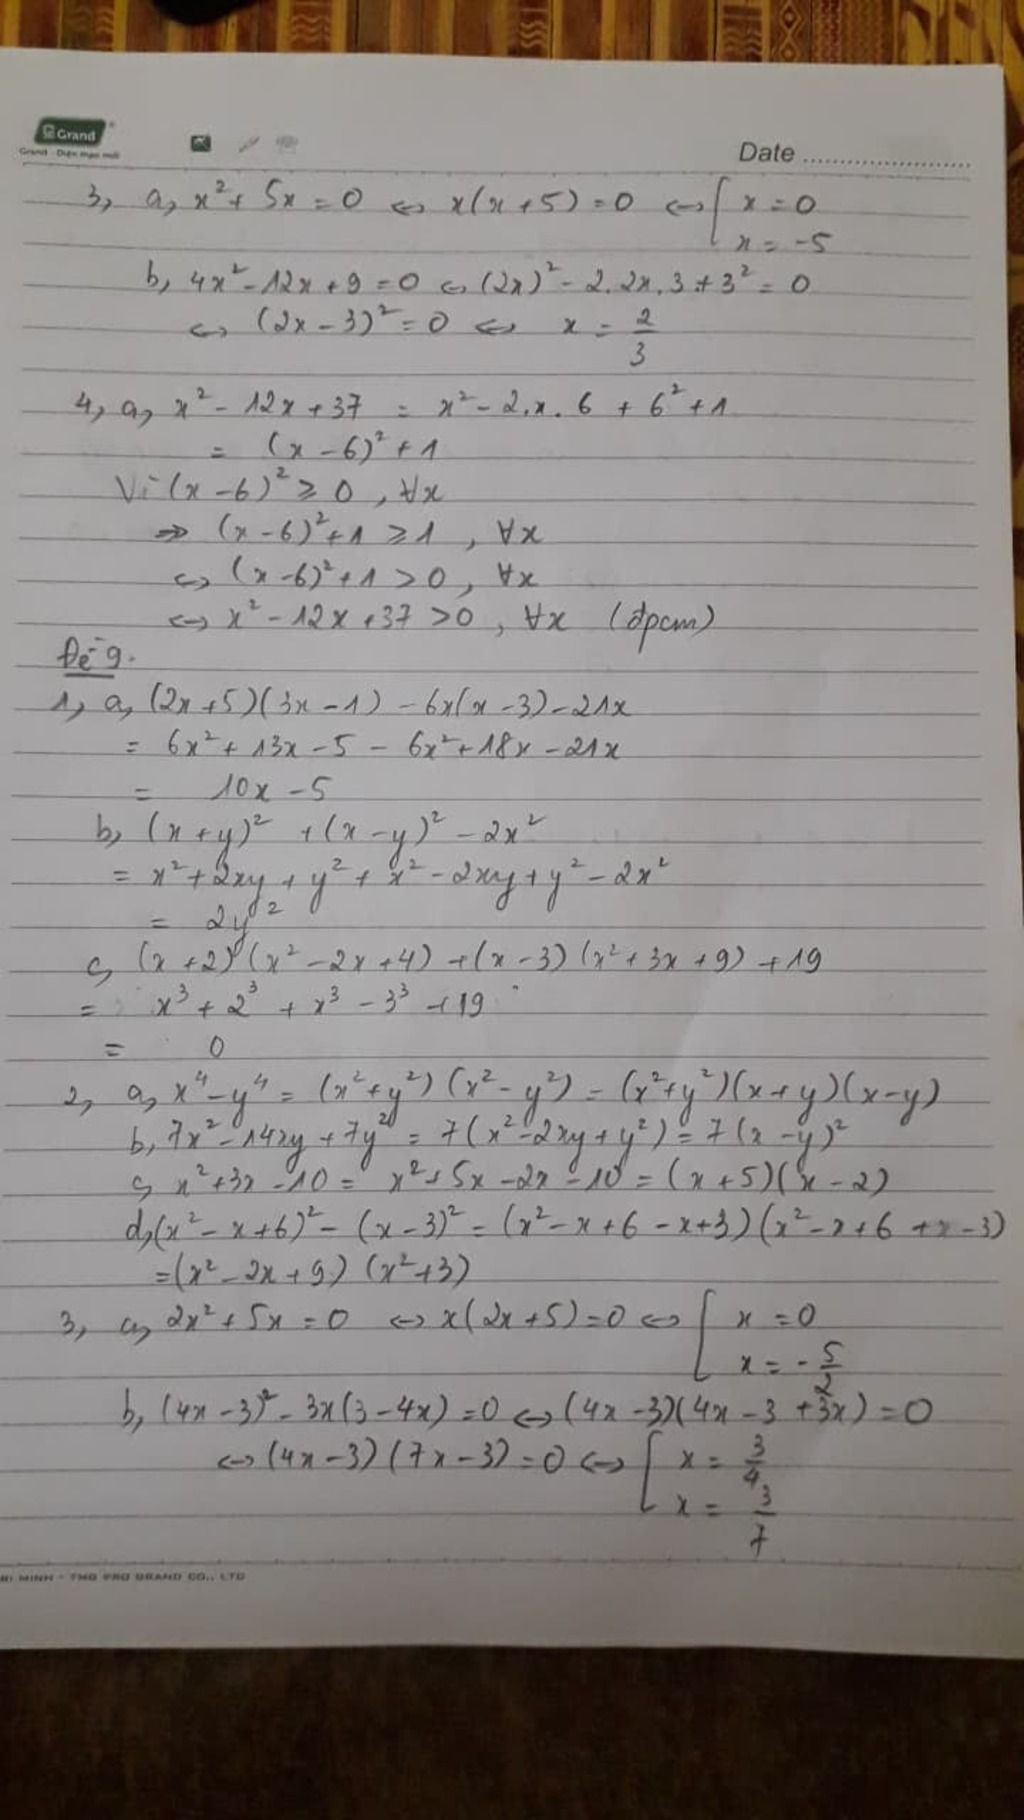 Grand
Grand - Diện mạo mới
Date
3, a, x² + 5x = 0 ⇔ x(x+5) = 0 ⇔ [ x = 0
x = -5
b, 4x² - 12x + 9 = 0 ⇔ (2x)² - 2.2x.3 + 3² = 0
⇔ (2x - 3)² = 0 ⇔ x = 2/3
4, a, x² - 12x + 37 = x² - 2.x.6 + 6² + 1
= (x - 6)² + 1
Vì (x - 6)² ≥ 0, ∀x
⇒ (x - 6)² + 1 ≥ 1, ∀x
⇔ (x - 6)² + 1 > 0, ∀x
⇔ x² - 12x + 37 > 0, ∀x (đpcm)
Đề 9.
1, a, (2x+5)(3x - 1) - 6x(x - 3) - 21x
= 6x² + 13x - 5 - 6x² + 18x - 21x
= 10x - 5
b, (x + y)² + (x - y)² - 2x²
= x² + 2xy + y² + x² - 2xy + y² - 2x²
= 2y²
c, (x + 2)(x² - 2x + 4) + (x - 3)(x² + 3x + 9) + 19
= x³ + 2³ + x³ - 3³ + 19
= 0
2, a, x⁴ - y⁴ = (x² + y²)(x² - y²) = (x² + y²)(x + y)(x - y)
b, 7x² - 14xy + 7y² = 7(x² - 2xy + y²) = 7(x - y)²
c, x² + 3x - 10 = x² + 5x - 2x - 10 = (x + 5)(x - 2)
d, (x² - x + 6)² - (x - 3)² = (x² - x + 6 - x + 3)(x² - x + 6 + x - 3)
= (x² - 2x + 9)(x² + 3)
3, a, 2x² + 5x = 0 ⇔ x(2x + 5) = 0 ⇔ [ x = 0
x = -5/2
b, (4x - 3)² - 3x(3 - 4x) = 0 ⇔ (4x - 3)(4x - 3 + 3x) = 0
⇔ (4x - 3)(7x - 3) = 0 ⇔ [ x = 3/4
x = 3/7
MINH - TMG PRO GRAND CO., LTD